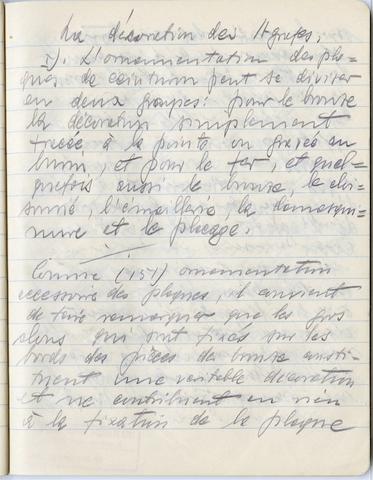 La décoration des Agrafes.
I). L'ornementation des pla=
ques de ceinturon peut se diviser
en deux groupes: pour le bronze
la décoration simplement
tracée à la pointe ou gravée au
burin, et pour le fer, et quel=
quefois aussi le bronze, le cloi=
sonné, l'émaillerie, la damasqui=
nure et le placage.
Comme (151) ornementation
accessoire des plaques, il convient
de faire remarquer que les gros
clous qui sont fixés sur les
bords des pièces de bronze consti=
tuent une véritable décoration
et ne contribuent en rien
à la fixation de la plaque